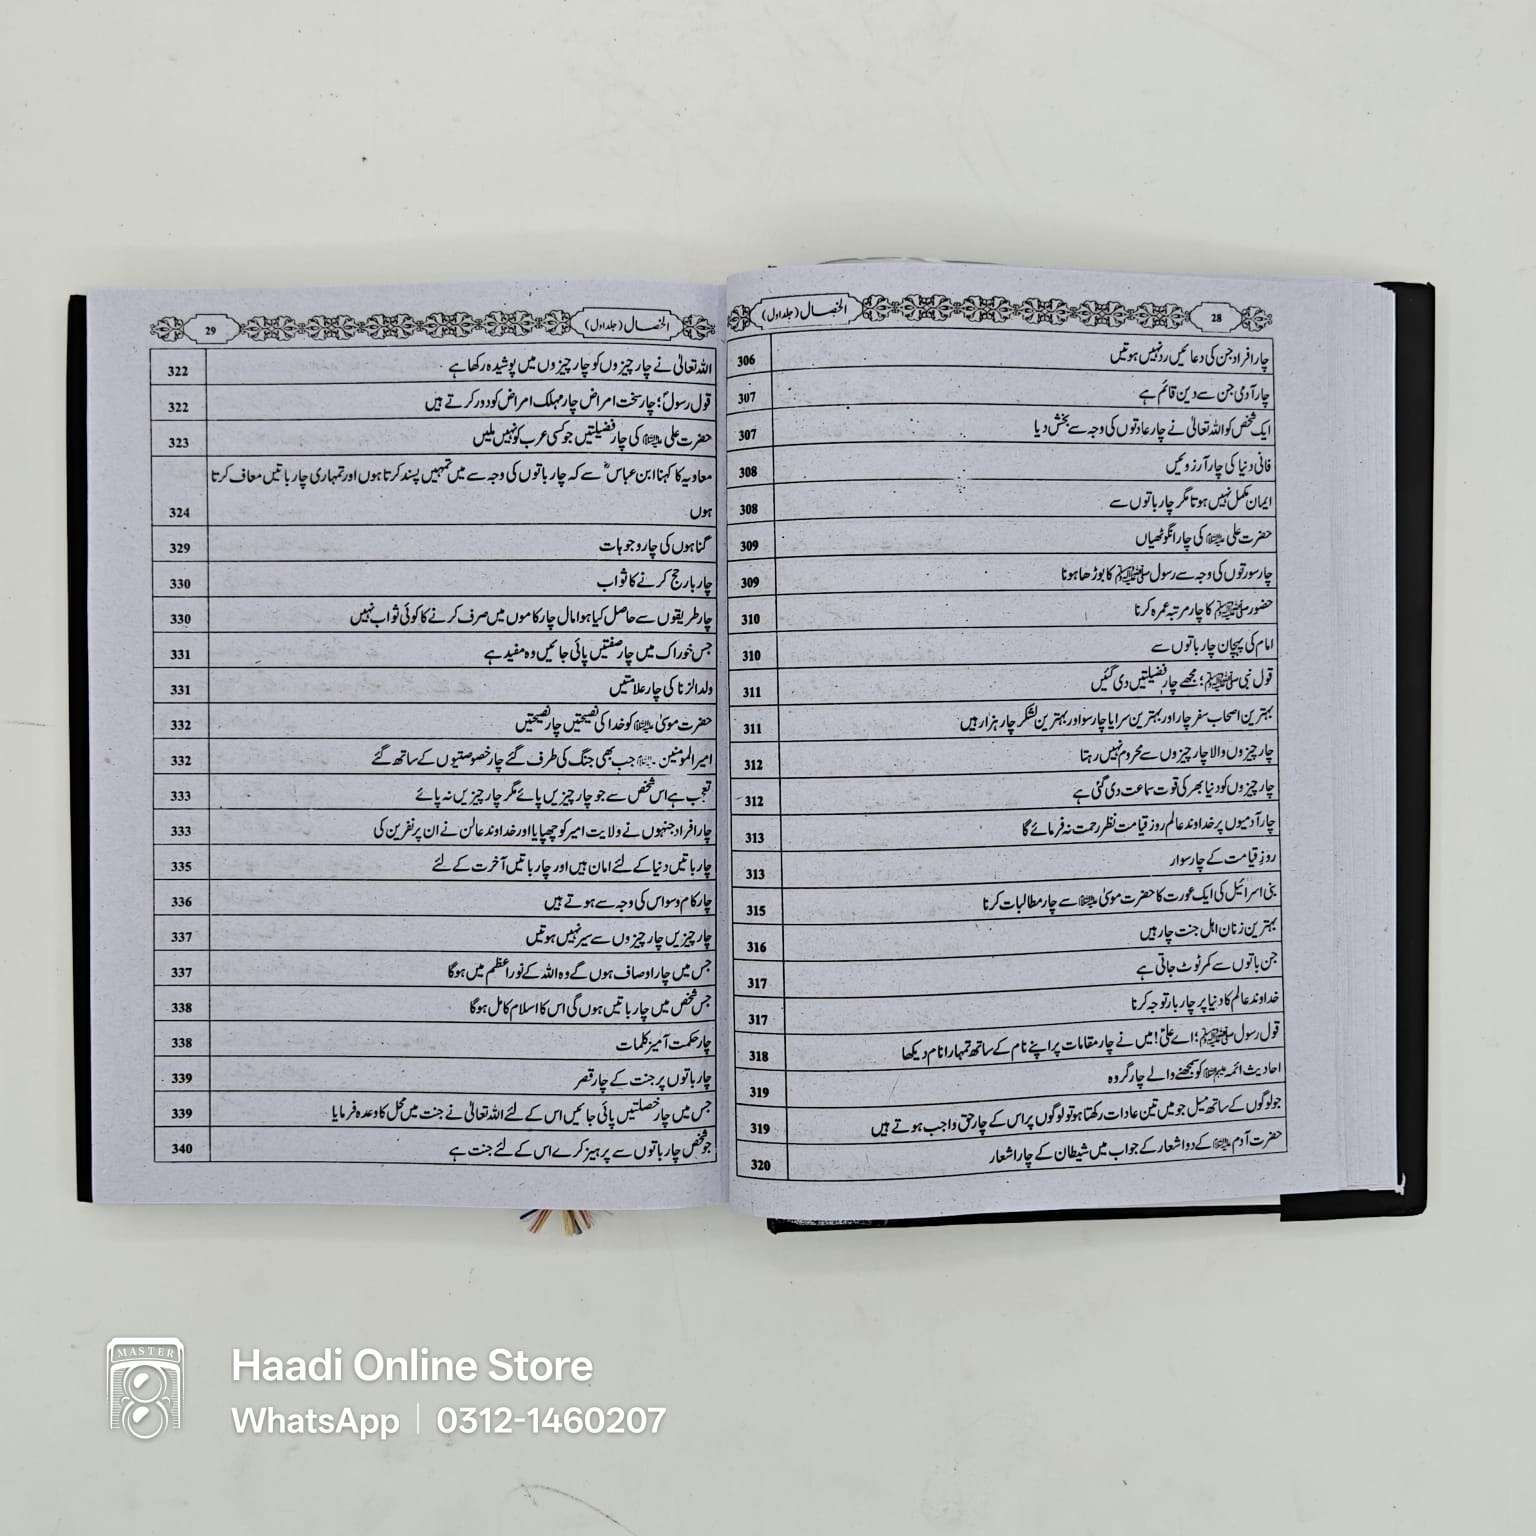 28
الخصال (جلد اول)
چار افراد جن کی دعائیں رد نہیں ہوتیں 306
چار آدمی جن سے دین قائم ہے 307
ایک شخص کو اللہ تعالیٰ نے چار عادتوں کی وجہ سے بخش دیا 307
فانی دنیا کی چار آرزوئیں 308
ایمان مکمل نہیں ہوتا مگر چار باتوں سے 308
حضرت علی علیہ السلام کی چار انگوٹھیاں 309
چار سورتوں کی وجہ سے رسول ﷺ کا بوڑھا ہونا 309
حضور ﷺ کا چار مرتبہ عمرہ کرنا 310
امام کی پہچان چار باتوں سے 310
قول نبی ﷺ؛ مجھے چار فضیلتیں دی گئیں 311
بہترین اصحاب سفر چار اور بہترین سرایا چار سو اور بہترین لشکر چار ہزار ہیں 311
چار چیزوں والا چار چیزوں سے محروم نہیں رہتا 312
چار چیزوں کو دنیا بھر کی قوت سماعت دی گئی ہے 312
چار آدمیوں پر خداوند عالم روز قیامت نظر رحمت نہ فرمائے گا 313
روزِ قیامت کے چار سوار 313
بنی اسرائیل کی ایک عورت کا حضرت موسیٰ علیہ السلام سے چار مطالبات کرنا 315
بہترین زنان اہل جنت چار ہیں 316
جن باتوں سے کمر ٹوٹ جاتی ہے 317
خداوند عالم کا دنیا پر چار بار توجہ کرنا 317
قول رسول ﷺ؛ اے علیؑ! میں نے چار مقامات پر اپنے نام کے ساتھ تمہارا نام دیکھا 318
احادیث ائمہ علیہم السلام کو سمجھنے والے چار گروہ 319
جو لوگوں کے ساتھ میل جو میں تین عادات رکھتا ہو تو لوگوں پر اس کے چار حق واجب ہوتے ہیں 319
حضرت آدم علیہ السلام کے دو اشعار کے جواب میں شیطان کے چار اشعار 320
الخصال (جلد اول)
29
اللہ تعالیٰ نے چار چیزوں کو چار چیزوں میں پوشیدہ رکھا ہے 322
قول رسولؐ؛ چار سخت امراض چار مہلک امراض کو دور کرتے ہیں 322
حضرت علی علیہ السلام کی چار فضیلتیں جو کسی عرب کو نہیں ملیں 323
معاویہ کا کہنا ابن عباسؓ سے کہ چار باتوں کی وجہ سے میں تمہیں پسند کرتا ہوں اور تمہاری چار باتیں معاف کرتا
ہوں 324
گناہوں کی چار وجوہات 329
چار بار حج کرنے کا ثواب 330
چار طریقوں سے حاصل کیا ہوا مال چار کاموں میں صرف کرنے کا کوئی ثواب نہیں 330
جس خوراک میں چار صفتیں پائی جائیں وہ مفید ہے 331
ولد الزنا کی چار علامتیں 331
حضرت موسیٰ علیہ السلام کو خدا کی نصیحتیں چار نصیحتیں 332
امیر المومنین علیہ السلام جب بھی جنگ کی طرف گئے چار خصوصتیوں کے ساتھ گئے 332
تعجب ہے اس شخص سے جو چار چیزیں پائے مگر چار چیزیں نہ پائے 333
چار افراد جنہوں نے ولایت امیر کو چھپایا اور خداوند عالن نے ان پر نفرین کی 333
چار باتیں دنیا کے لئے امان ہیں اور چار باتیں آخرت کے لئے 335
چار کام وسواس کی وجہ سے ہوتے ہیں 336
چار چیزیں چار چیزوں سے سیر نہیں ہوتیں 337
جس میں چار اوصاف ہوں گے وہ اللہ کے نور اعظم میں ہوگا 337
جس شخص میں چار باتیں ہوں گی اس کا اسلام کامل ہوگا 338
چار حکمت آمیز کلمات 338
چار باتوں پر جنت کے چار قصر 339
جس میں چار خصلتیں پائی جائیں اس کے لئے اللہ تعالیٰ نے جنت میں محل کا وعدہ فرمایا 339
جو شخص چار باتوں سے پرہیز کرے اس کے لئے جنت ہے 340
MASTER
Haadi Online Store
WhatsApp | 0312-1460207